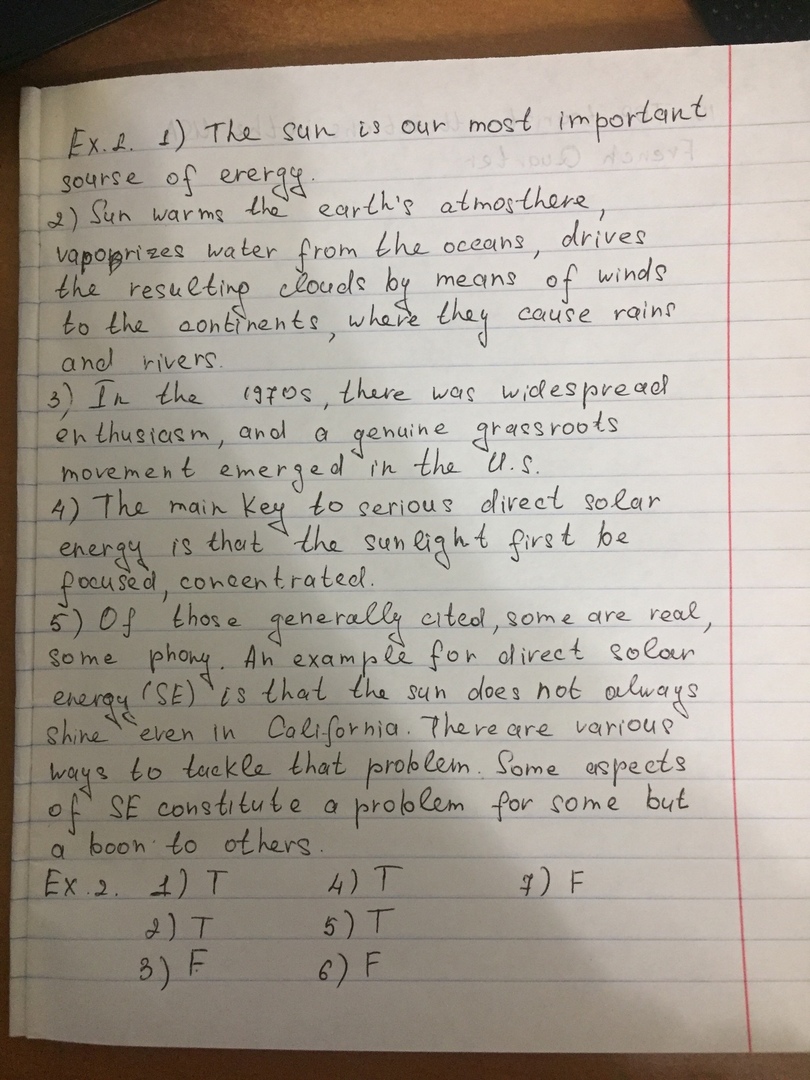 Ex. 2. 1) The sun is our most important
sourse of erergy.
2) Sun warms the earth's atmosthere,
vapoprizes water from the oceans, drives
the resulting clouds by means of winds
to the continents, where they cause rains
and rivers.
3) In the 1970s, there was widespread
enthusiasm, and a genuine grassroots
movement emerged in the U.S.
4) The main key to serious direct solar
energy is that the sunlight first be
focused, concentrated.
5) Of those generally cited, some are real,
some phony. An example for direct solar
energy (SE) is that the sun does not always
shine even in California. There are various
ways to tackle that problem. Some aspects
of SE constitute a problem for some but
a boon to others.
Ex. 2. 1) T 4) T 7) F
2) T 5) T
3) F 6) F